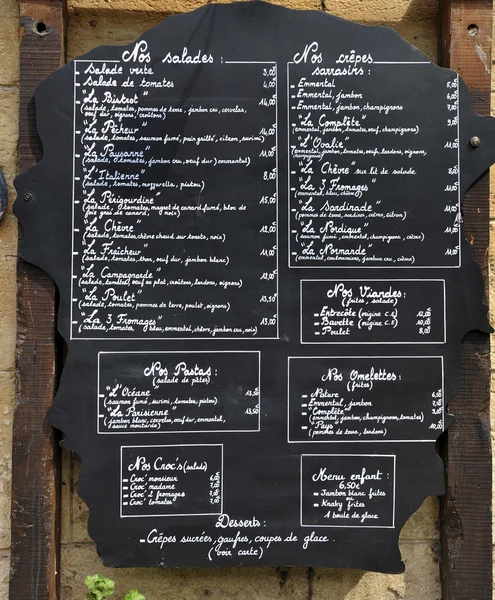 Nos salades :
- Salade verte 3,00
- Salade de tomates 4,00
- "Le Bistrot" 14,00
(salade, tomates, pommes de terre, jambon cru, cervelas,
oeuf dur, oignons, croûtons)
- "Le Pêcheur" 14,00
(salade, tomates, saumon fumé, pain grillé, citron, surimi)
- "La Paysanne" 11,00
(salade, tomates, jambon cru, oeuf dur, emmental)
- "L'Italienne" 8,00
(salade, tomates, mozzarella, pistou)
- "La Périgourdine 15,00
(salade, tomates, magret de canard fumé, bloc de
foie gras de canard, noix)
- "La Chèvre" 12,00
(salade, tomates, chèvre chaud sur toasts, noix)
- "La Fraîcheur" 11,00
(salade, tomates, thon, oeuf dur, jambon blanc)
- "La Campagnarde" 12,00
(salade, tomates, oeuf au plat, croûtons, lardons, oignons)
- "Le Poulet" 13,50
(salade, tomates, pommes de terre, poulet, oignons)
- "La 3 Fromages" 13,00
(salade, tomates, bleu, emmental, chèvre, jambon cru, noix)
Nos Pastas :
(salade de pâtes)
- "L'Océane 13,50
(saumon fumé, surimi, tomates, pistou)
- "La Parisienne" 13,50
(jambon blanc, cervelas, oeuf dur, emmental,
sauce moutarde)
Nos Croc's (salade)
- Croc' monsieur 6,00
- Croc' madame 7,00
- Croc' 2 fromages 7,00
- Croc' tomates 7,00
Nos crêpes
sarrasins :
- Emmental 5,00
- Emmental, jambon 6,00
- Emmental, jambon, champignons 7,00
- "La Complète" 9,00
(emmental, jambon, tomates, oeuf, champignons)
- "L'Ovalie" 11,00
(emmental, jambon, tomates, oeuf, lardons, oignons,
champignons)
- "La Chèvre" sur lit de salade 8,00
- "La 3 Fromages" 11,00
(emmental, bleu, chèvre)
- "La Sardinade" 11,00
(pommes de terre, sardines, crème, citron)
- "La Nordique" 11,00
(saumon fumé, emmental, champignons, crème)
- "La Normande" 11,00
(emmental, camembert, jambon, crème)
Nos Viandes :
(frites, salade)
- Entrecôte (origine C.E) 12,00
- Bavette (origine C.E) 10,00
- Poulet 8,00
Nos Omelettes :
(frites)
- Nature 6,50
- Emmental, jambon 7,00
- "Complète" 9,00
(emmental, jambon, champignons, tomates)
- "Pays" 10,00
(pommes de terre, lardons)
Menu enfant :
6,50€
- Jambon blanc frites
ou
- Knaky frites
1 boule de glace
Desserts :
- Crêpes sucrées, gaufres, coupes de glace.
(voir carte)